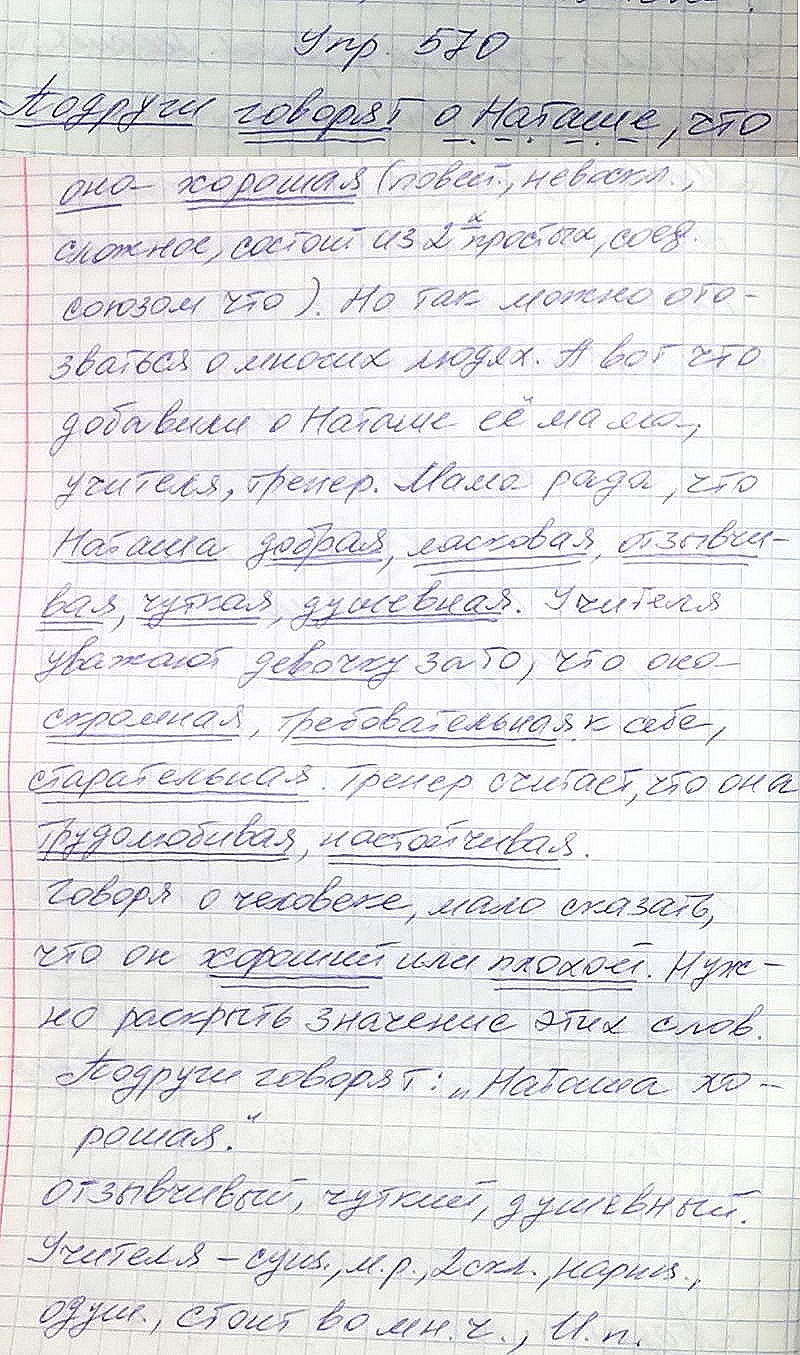 Упр. 570
Подруги говорят о Наташе, что
она хорошая (повест., невоскл.,
сложное, состоит из 2х простых, соед.
союзом что). Но так можно ото-
зваться о многих людях. А вот что
добавили о Наташе её мама,
учителя, тренер. Мама рада, что
Наташа добрая, ласковая, отзывчи-
вая, чуткая, душевная. Учителя
уважают девочку за то, что она
скромная, требовательная к себе,
старательная. Тренер считает, что она
трудолюбивая, настойчивая.
Говоря о человеке, мало сказать,
что он хороший или плохой. Нуж-
но раскрыть значение этих слов.
Подруги говорят: „Наташа хо-
рошая."
Отзывчивый, чуткий, душевный.
Учителя – сущ., м.р., 2 скл., нариц.,
одуш., стоит во мн.ч., И.п.